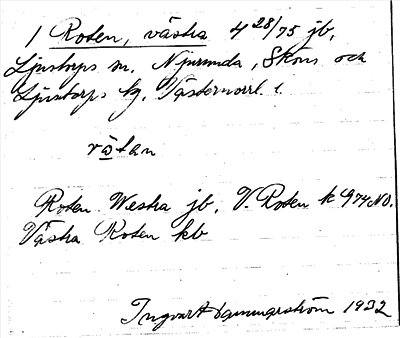 1 Roten, västra 4 28/75 jb,
Ljustorps sn. Njurunda, Sköns och
Ljustorps tg. Västernorrl. l.
rò̲tan
Roten Westra jb, V. Roten k 974 NO.
Västra Roten kb
Ingvart Hammarström 1932